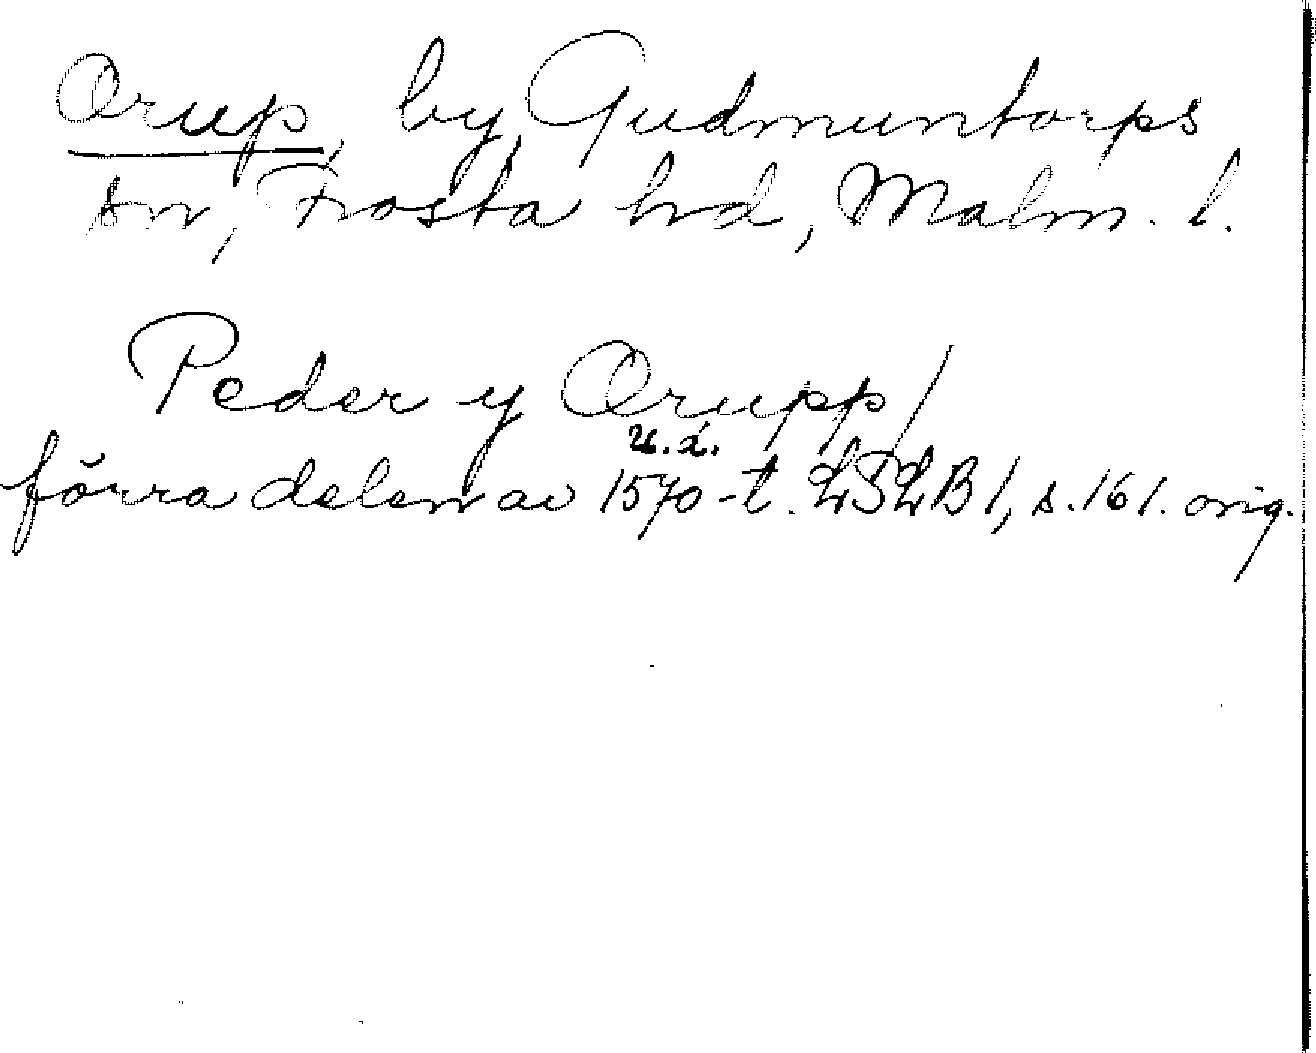 Orup, by, Gudmuntorps
sn, Frosta hrd, Malm. l.
Peder y Orupp/
u.å.
förra delen av 1570-t. LSLB 1, s. 161. orig.